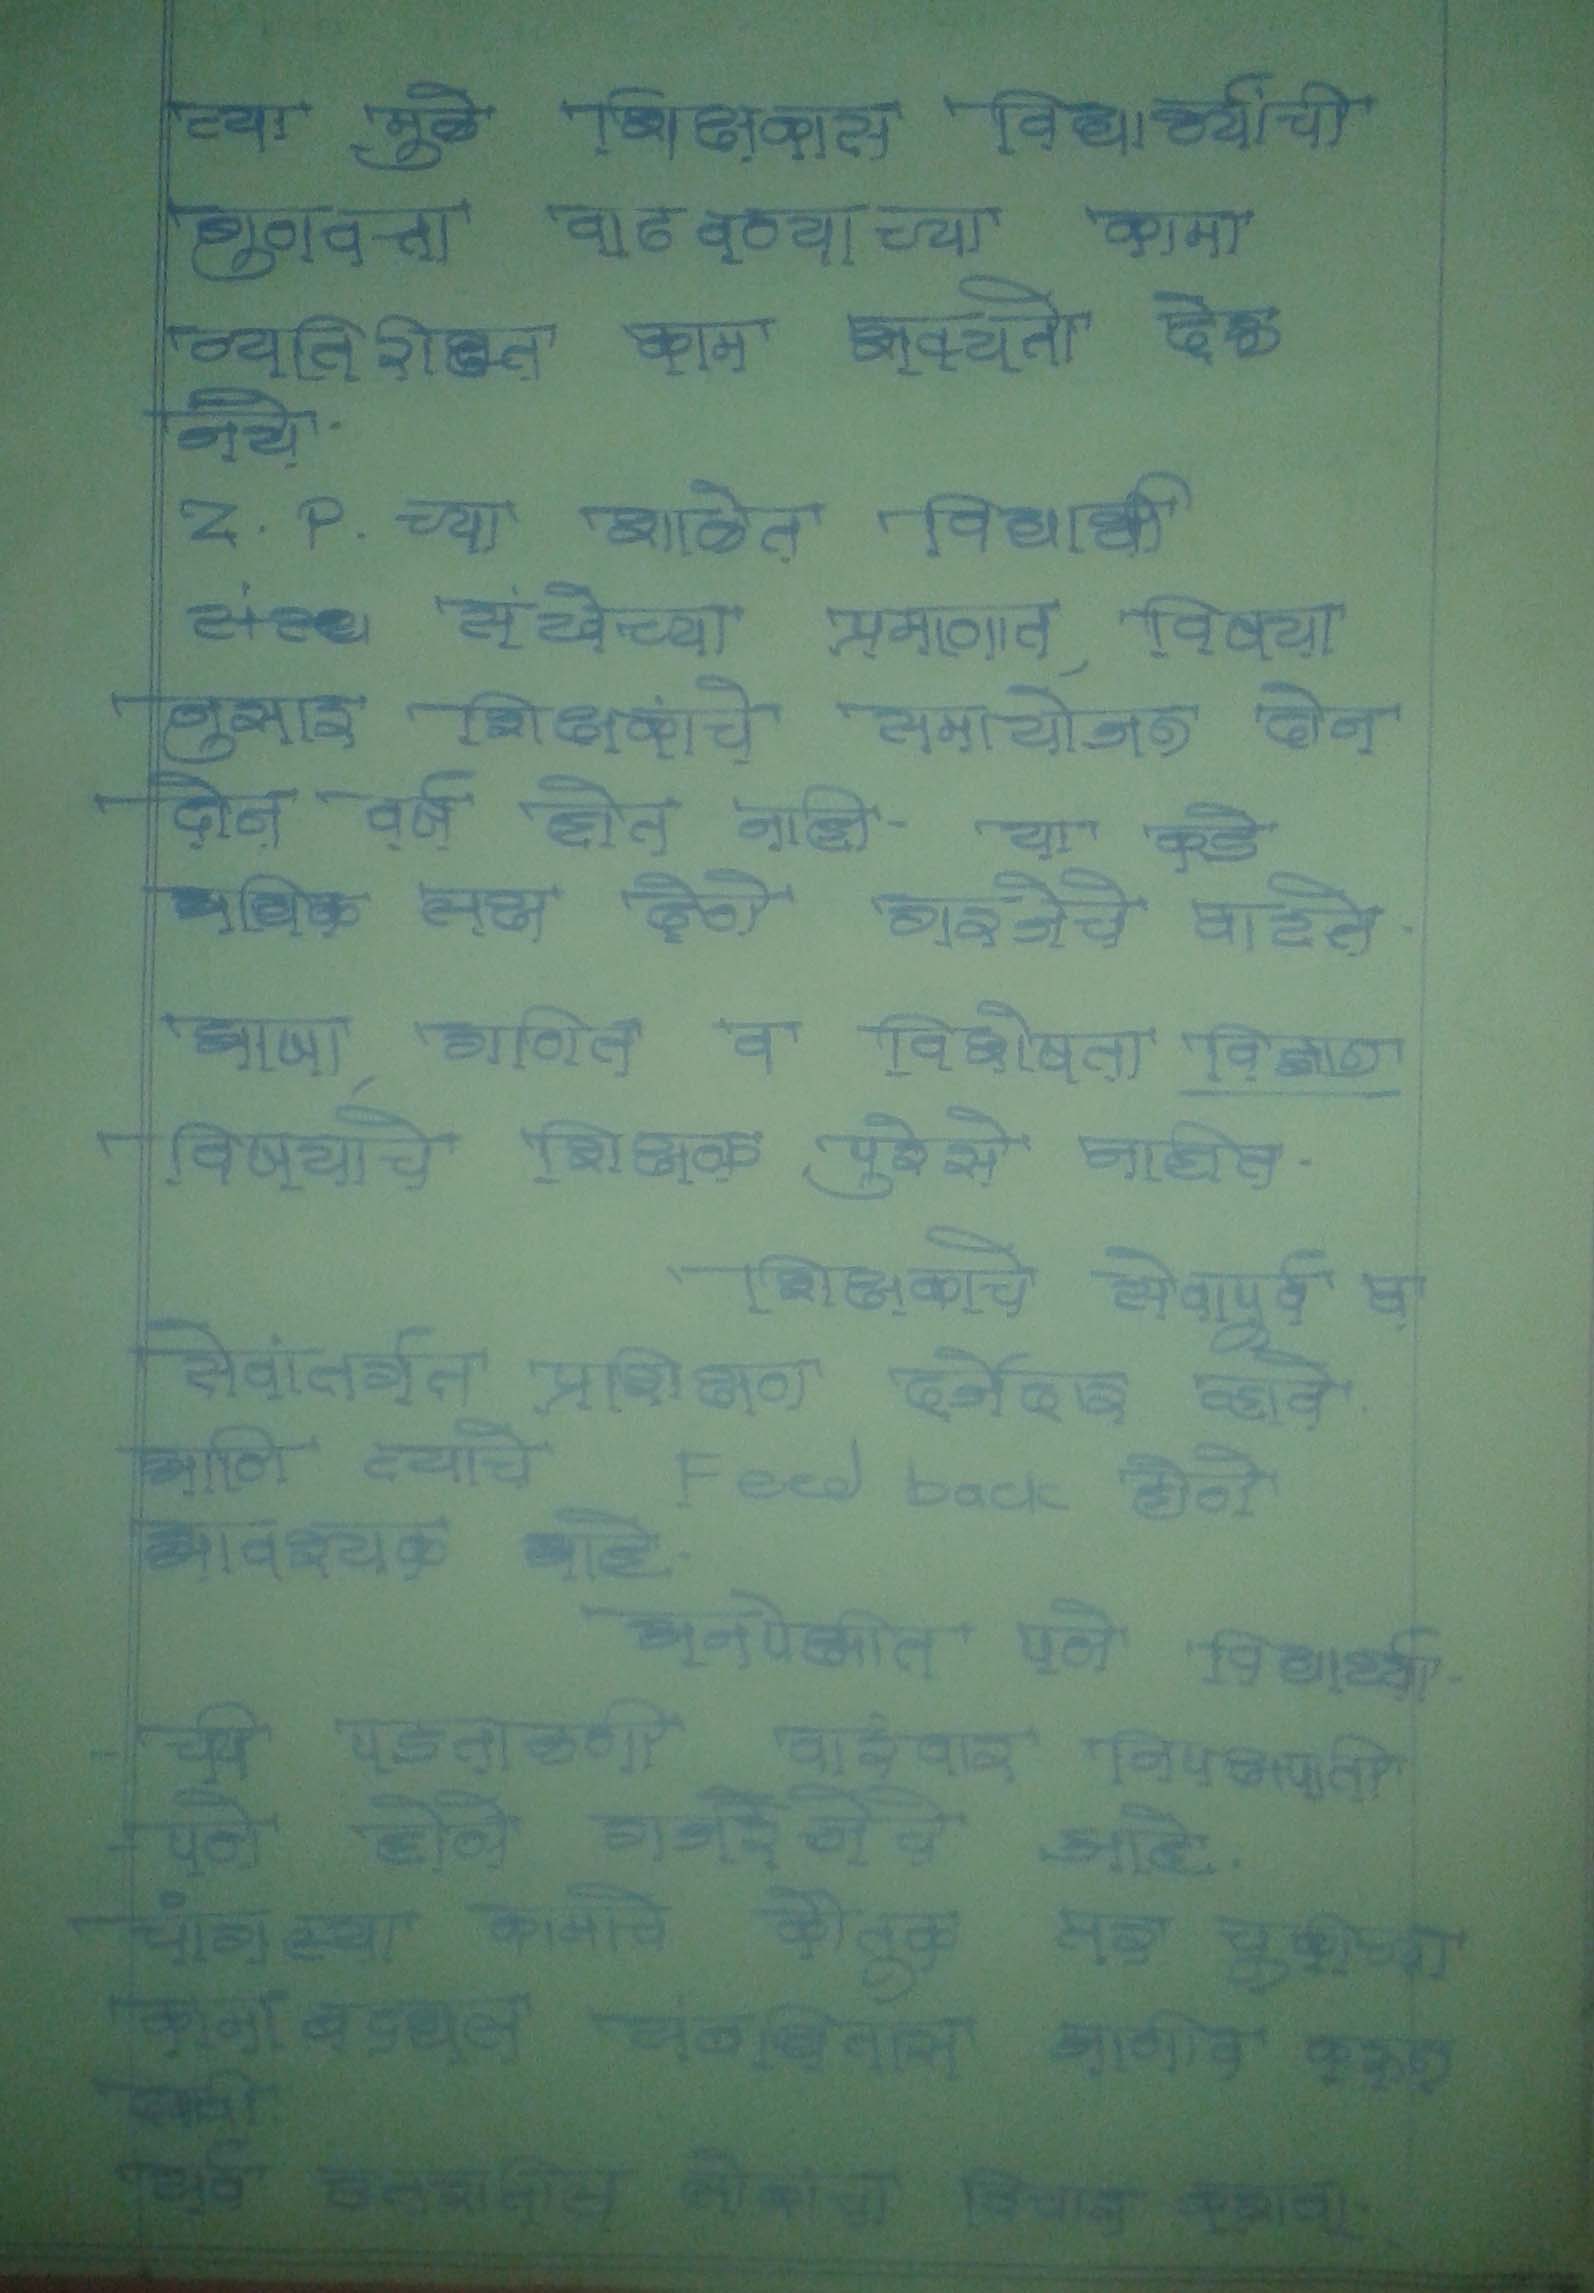 त्या मुळे शिक्षकास विद्यार्थ्यांची
गुणवत्ता वाढवण्याच्या कामा
व्यतिरिक्त काम शक्यतो देऊ
नये.
Z. P. च्या शाळेत विद्यार्थी
संख्येच्या प्रमाणात, विषया
नुसार शिक्षकांचे समायोजन दोन
दोन वर्ष होत नाही. या कडे
अधिक लक्ष देणे गरजेचे वाटते.
भाषा, गणित व विशेषता विज्ञान
विषयाचे शिक्षक पुरेसे नाहीत.
शिक्षकाचे सेवापूर्व व
सेवांतर्गत प्रशिक्षण दर्जेदार व्हावे.
आणि त्याचे Feed back होणे
आवश्यक आहे.
अनपेक्षीत पणे विद्यार्थ्यां-
ची पडताळणी वारंवार निपक्षपाती
पणे होणे गरजेचे आहे.
चांगल्या कामाचे कौतुक तर चुकीच्या
कामाबद्दल संबंधितास जाणीव करून
द्यावी.
सर्व स्तरातील लोकांचा विचार करावा.